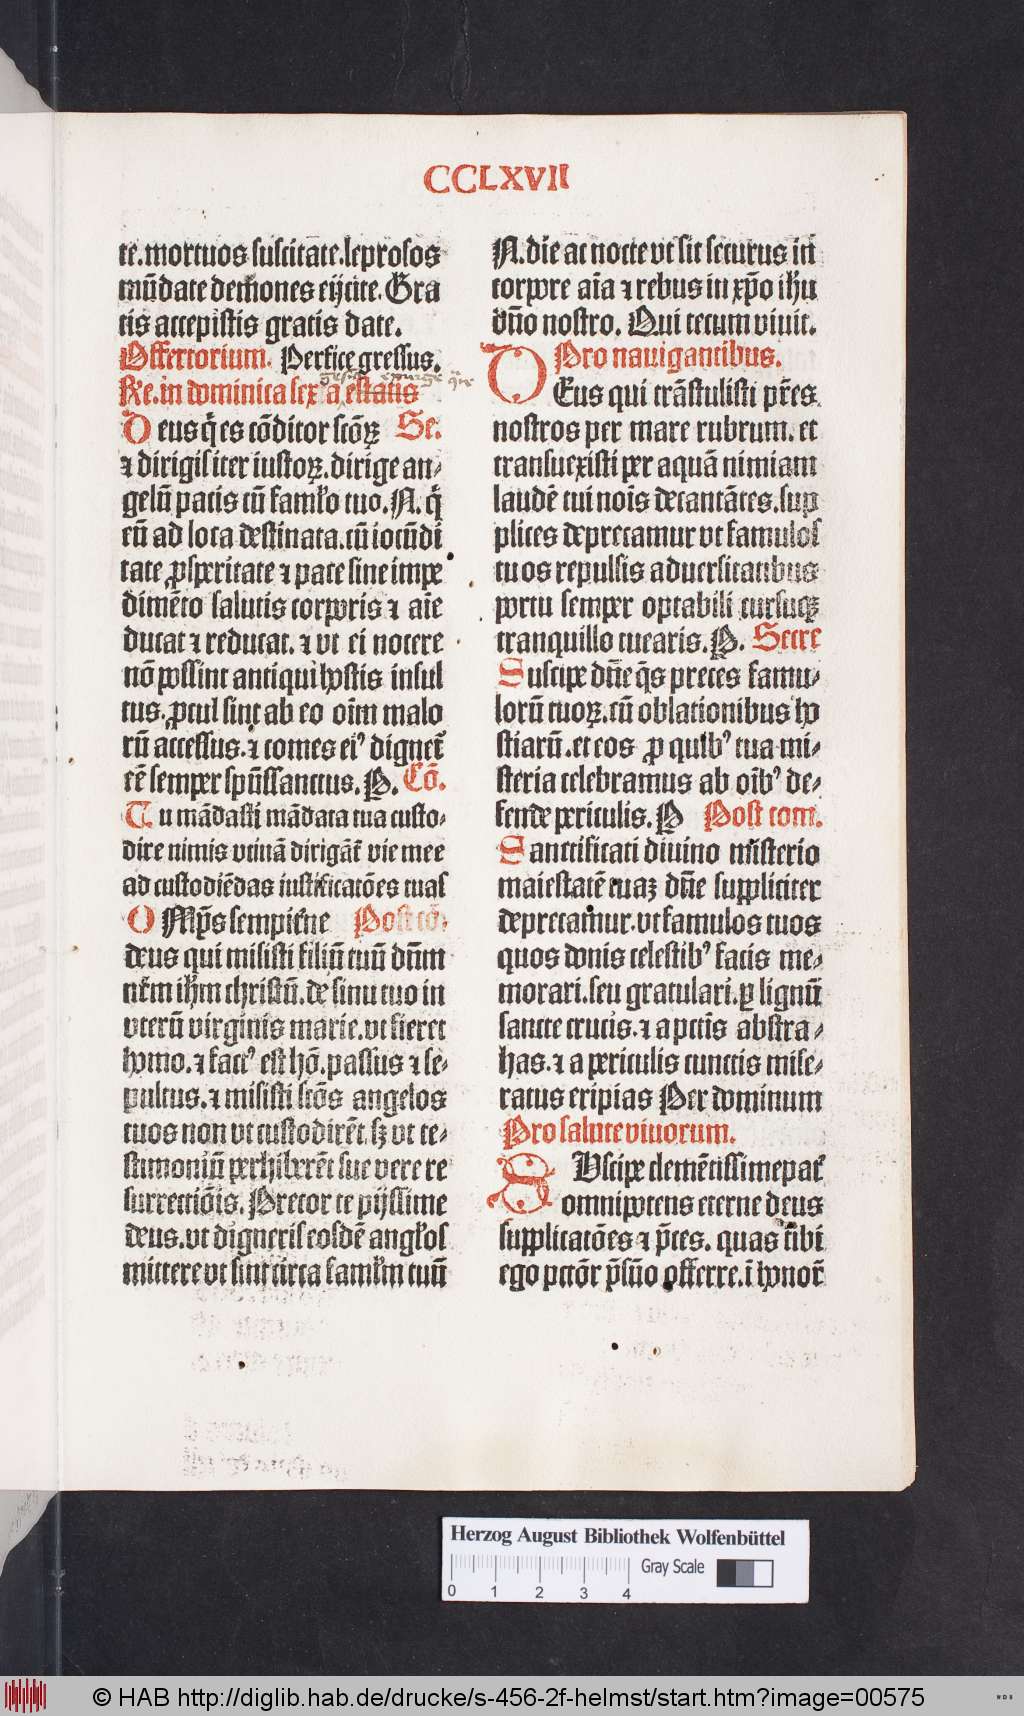 CCLXVII
te.mortuos suscitate.leprosos
mūdate demones eijcite. Gra
tis accepistis gratis date.
Offertorium. Perfice gressus.
Re.in dominica sexa estatis
Deus q̄ es cōditor scōꝝ Se.
⁊ dirigis iter iustoꝝ.dirige an⸗
gelū pacis cū famło tuo. N. q̄
eū ad loca destinata.cū iocūdi
tate ꝓsperitate ⁊ pace sine impe
dimēto salutis corporis ⁊ aīe
ducat ⁊ reducat. ⁊ vt ei nocere
nō possint antiqui hostis insul
tus.ꝓcul sint ab eo oīm malo
rū accessus.⁊ comes eiꝰ dignet᷑
eē semper spūssanctus. P. Cō.
Tu mādasti mādata tua custo⸗
dire nimis vtinā dirigāt᷑ vie mee
ad custodiēdas iustificatōes tuas
OMp̄s sempit̄ne Post cō.
deus qui misisti filiū tuū dn̄m
nr̄m ihm̄ christū.de sinu tuo in
vterū virginis marie.vt fieret
homo.⁊ factꝰ est hō.passus ⁊ se⸗
pultus.⁊ misisti scōs angelos
tuos non vt custodirēt.sꝫ vt te⸗
stimoniū perhiberēt sue vere re
surrectiōis. Precor te pijssime
deus.vt digneris eosdē angłos
mittere vt sint circa famłm tuū
N.die ac nocte vt sit securus in̄
corpore aīa ⁊ rebus in xp̄o ihū
dn̄o nostro. Qui tecum viuit.
Pro nauigantibus.
DEus qui trāstulisti pr̄es
nostros per mare rubrum. et
transuexisti per aquā nimiam
laudē tui noīs decantātes.sup
plices deprecamur vt famulos
tuos repulsis aduersitatibus
portu semper optabili cursuqꝫ
tranquillo tuearis. P. Secre
Suscipe dn̄e q̄s preces famu⸗
lorū tuoꝝ.cū oblationibus ho
stiarū.et eos ꝓ quibꝰ tua mi⸗
steria celebramus ab oībꝰ de⸗
fende periculis. P Post com.
Sanctificati diuino misterio
maiestatē tuaꝫ dn̄e suppliciter
deprecamur.vt famulos tuos
quos donis celestibꝰ facis me⸗
morari.seu gratulari.ꝑ lignū
sancte crucis.⁊ a pctīs abstra⸗
has.⁊ a periculis cunctis mise⸗
ratus eripias Per dominum
Pro salute viuorum.
SUscipe clemētissime pat̄
omnipotens eterne deus
supplicatōes ⁊ p̄ces. quas tibi
ego pctōr p̄sūo offerre.ī honor̄
Herzog August Bibliothek Wolfenbüttel
Gray Scale
0 1 2 3 4
© HAB http://diglib.hab.de/drucke/s-456-2f-helmst/start.htm?image=00575